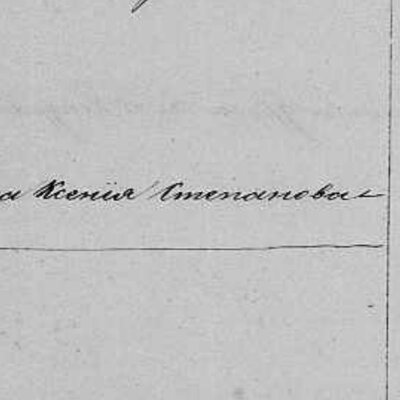 а Ксенія Степанова